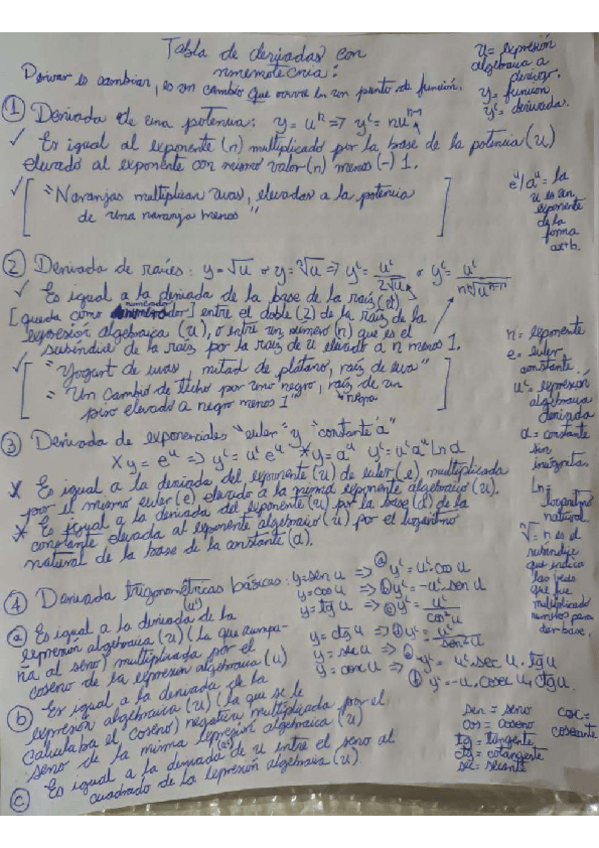 Tabla de derivadas con
nmemotecnia:
Derivar es cambiar, es un cambio que ocurre en un punto de función.
u = expresión
algebraica a
derivar.
y = función
y' = derivada.
① Derivada de una potencia: y = uⁿ => y' = nuⁿ⁻¹
✓ Es igual al exponente (n) multiplicado por la base de la potencia (u)
elevado al exponente con mismo valor (n) menos (-) 1.
✓ "Naranjas multiplican uvas, elevadas a la potencia
de una naranja menos"
eᵘ/aᵘ = la
u es un
exponente
de la
forma
ax+b.
② Derivada de raíces: y = √u o y = ⁿ√u => y' = u'/2√u o y' = u'/n ⁿ√uⁿ⁻¹
✓ Es igual a la derivada de la base de la raíz (u')
[queda como numerador] entre el doble (2) de la raíz de la
expresión algebraica (u), o entre un número (n) que es el
subíndice de la raíz por la raíz de u elevado a n menos 1.
✓ "Yogurt de uvas, mitad de plátano, raíz de uva"
"Un cambio de techo por uno negro, raíz de un
piso elevado a negro menos 1"
*negro
n = exponente
e = euler
constante
u' = expresión
algebraica
derivada
a = constante
sin
Ln =
logaritmo
natural.
ⁿ√ = n es el
subíndice
que indica
las veces
que fue
multiplicado
dar base.
③ Derivada de exponenciales "euler" y "constante a"
X y = eᵘ => y' = u'eᵘ * y = aᵘ y' = u'aᵘ Ln a
X Es igual a la derivada del exponente (u) de euler (e) multiplicada
por el mismo euler (e) elevado a la misma exponente algebraico (u).
* Es igual a la derivada del exponente (u) por la base (a) de la
constante elevada al exponente algebraico (u) por el logaritmo
natural de la base de la constante (a).
④ Derivada trigonométricas básicas: y = sen u => ⓐ y' = u'·cos u
y = cos u => ⓑ y' = -u'·sen u
y = tg u => ⓒ y' = u'/cos² u
y = ctg u => y' = u'/sen² u
y = sec u => y' = u'·sec u·tg u
y = cosc u => y' = -u·cosec u·ctg u
ⓐ Es igual a la derivada de la (u')
expresión algebraica (u) (la que acompa-
ña al seno) multiplicada por el
coseno de la expresión algebraica (u)
ⓑ Es igual a la derivada de la
expresión algebraica (u) (la que se le
calculaba el coseno) negativa multiplicada por el
seno de la misma expresión algebraica (u)
ⓒ Es igual a la derivada de u entre el seno al
cuadrado de la expresión algebraica (u).
sen = seno
cos = coseno
tg = tangente
ctg = cotangente
sec = secante
cosc =
cosecante